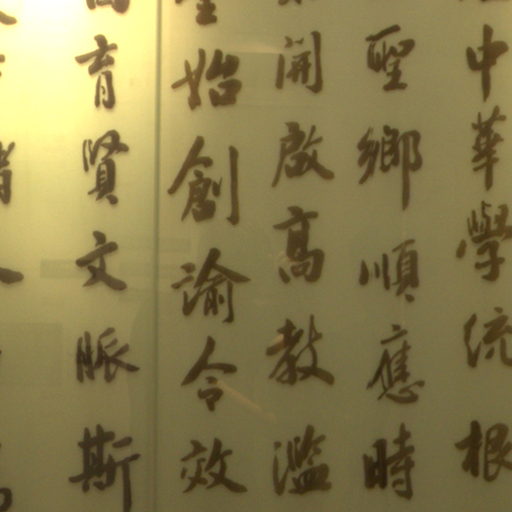 中華學統根
聖鄉順應時
開啟高教濫
始創諭令效
育賢文脈斯